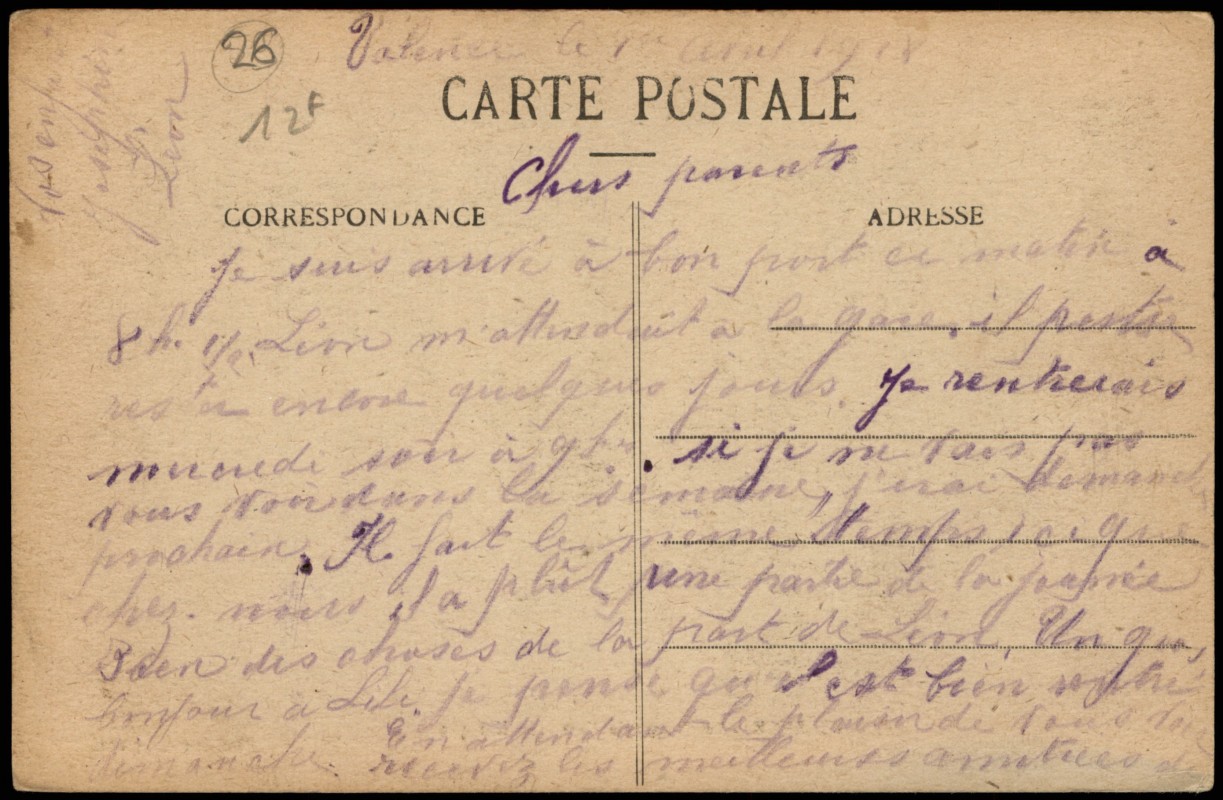 26
12F
Valence le 1er avril 191
CARTE POSTALE
Chers parents
CORRESPONDANCE
ADRESSE
Je suis arrivé à bon port ce matin à
8 h. 1/2, Léon m'attendait à la gare, il
restera encore quelques jours. Je rentrerais
mercredi soir à 9h si je ne vais pas
vous voir dans la semaine, j'irai
prochain. Il fait le même temps ici que
chez nous, il a plût une partie de la journée
Bien des choses de la part de Léon, Un
bonjour à Lili je pense qu'il est bien rentré
dimanche En attendant le plaisir de vous voir
recevez les meilleures amitiées de
vos enfants
Joséphine
Léon